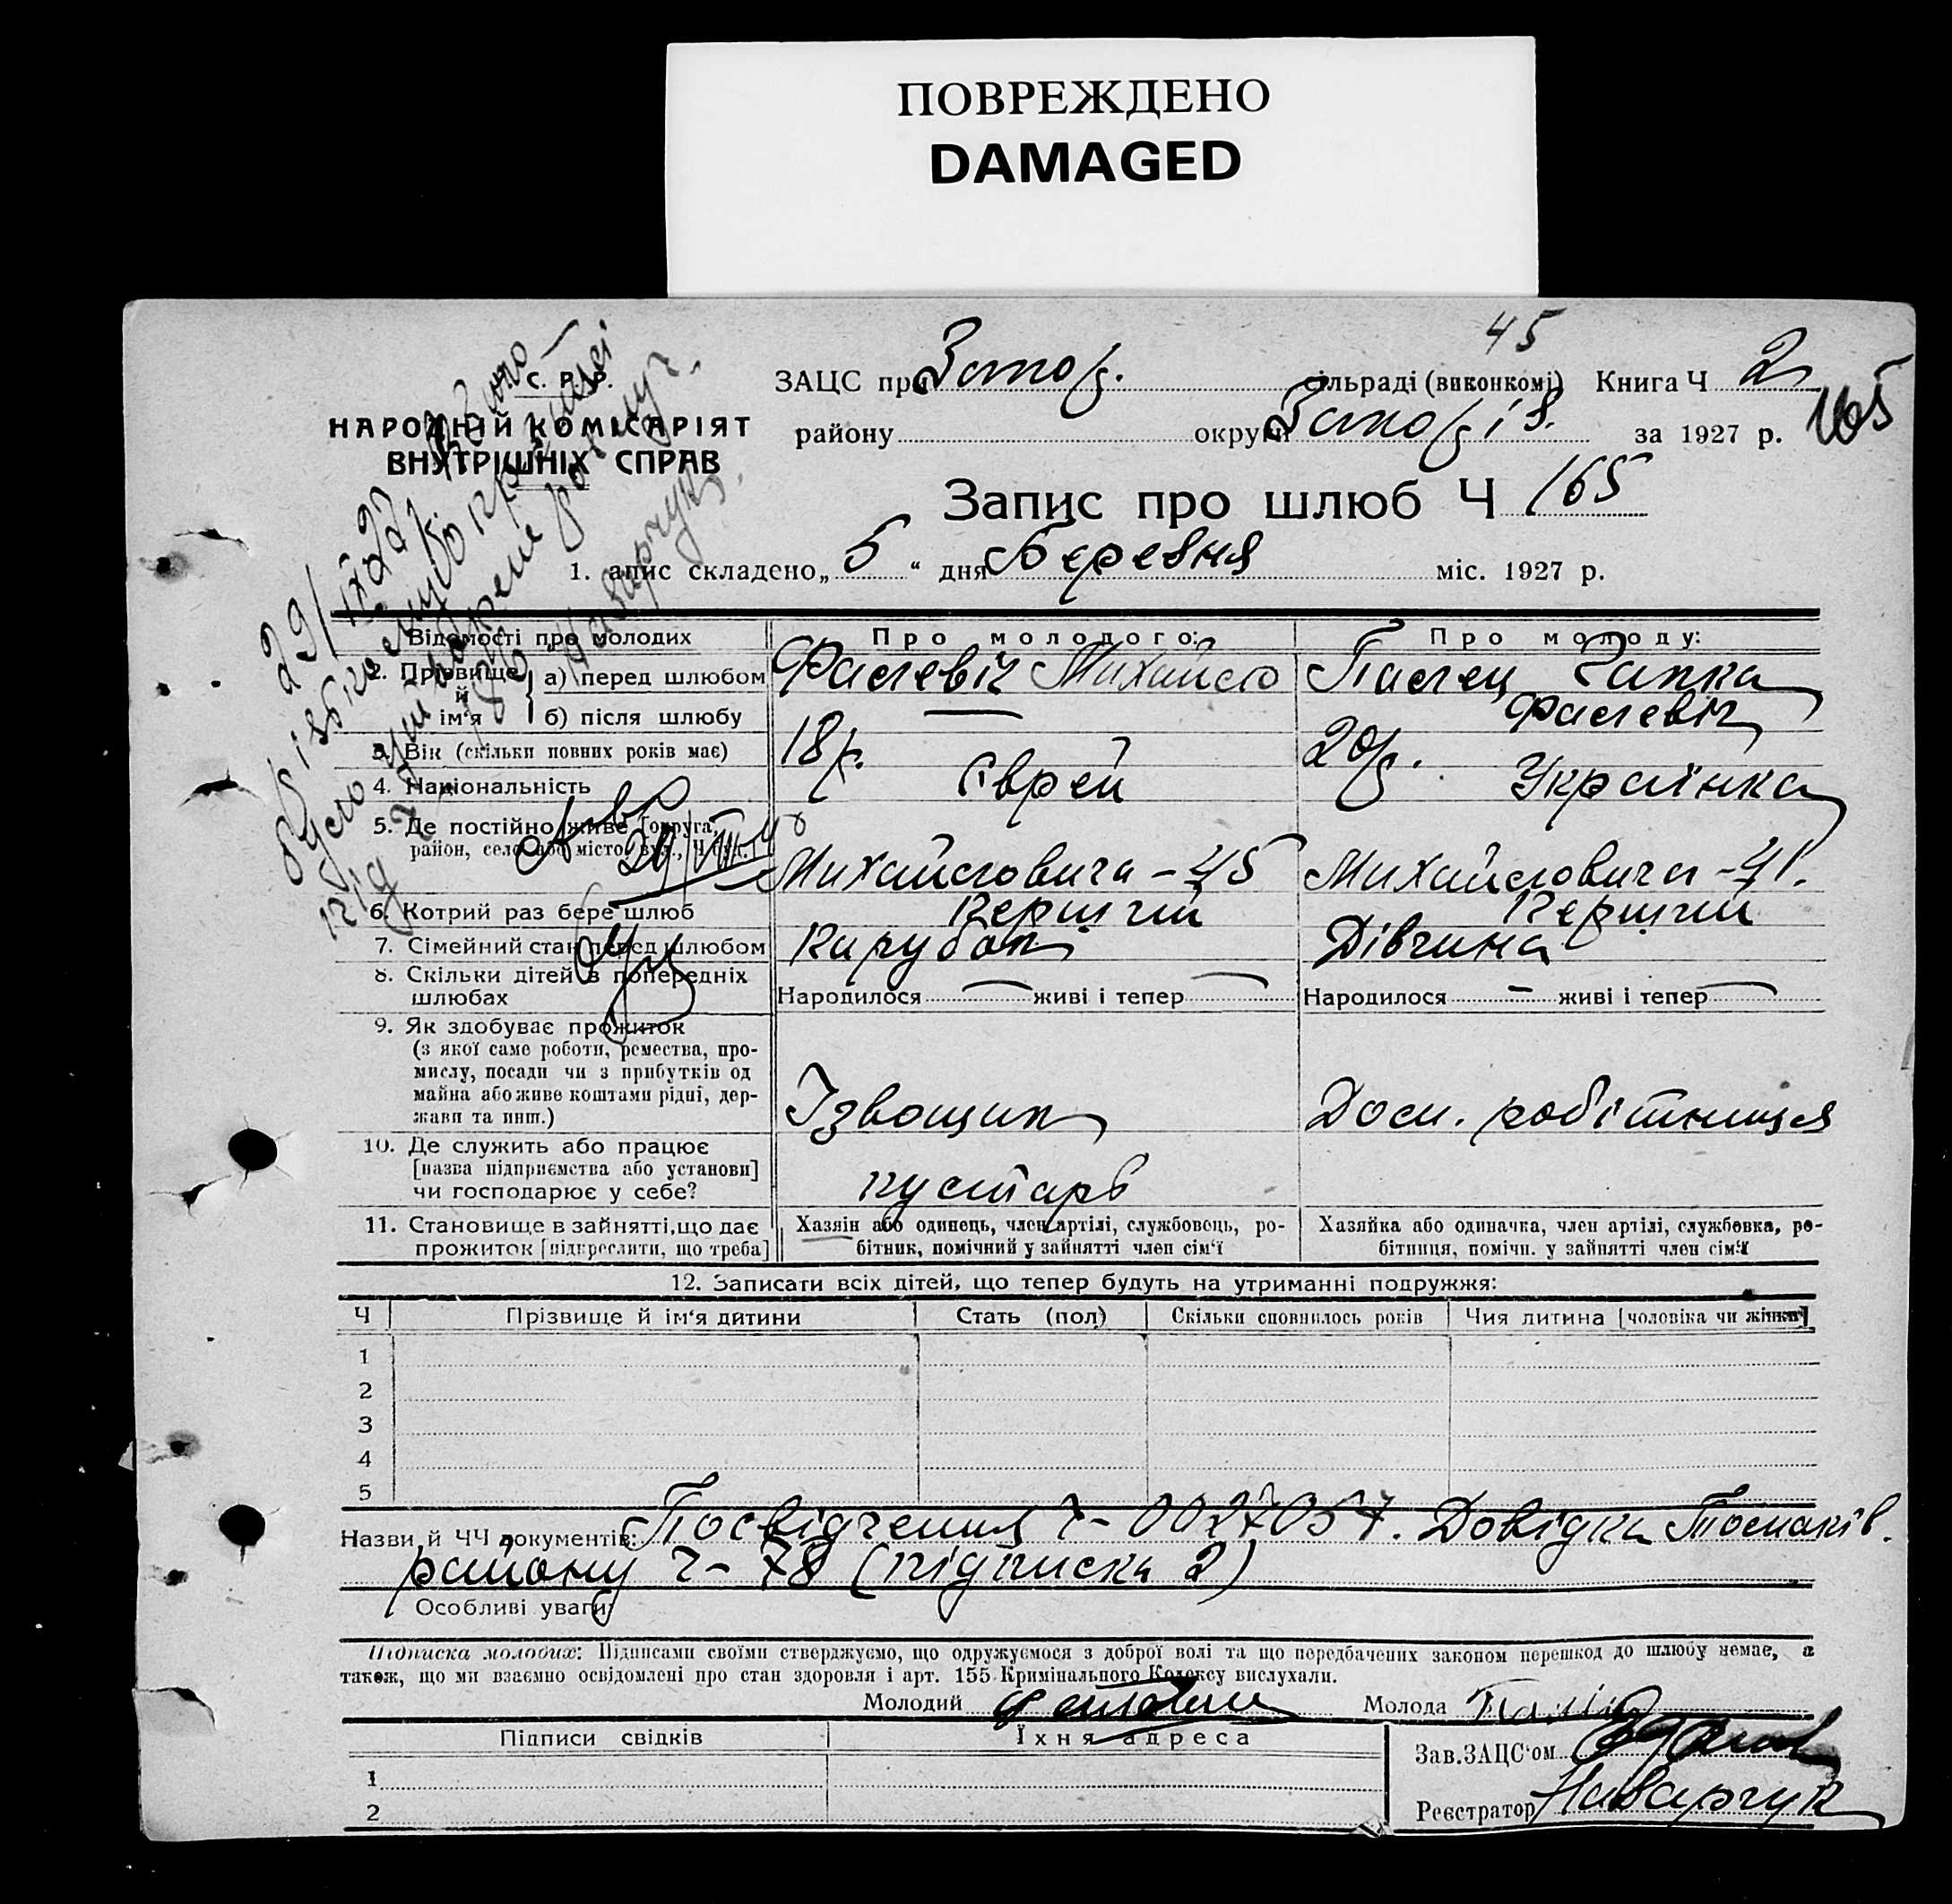 ПОВРЕЖДЕНО
DAMAGED
45
С. Р. Р.
НАРОДНІЙ КОМІСАРІЯТ
ВНУТРІШНІХ СПРАВ
ЗАЦС при Запор. сільраді (виконкомі) Книга Ч 2
району округи Запоріз. за 1927 р. 165
Запис про шлюб Ч 165
1. апис складено „5“ дня Березня міс. 1927 р.
Відомості про молодих Про молодого: Про молоду:
2. Прізвище й ім'я
а) перед шлюбом Фалевіч Михайло Палец
б) після шлюбу — Фалевіч
3. Вік (скільки повних років має) 18 р. 20 р.
4. Національність Єврей Українка
5. Де постійно живе [округа,
район, село або місто, вул., Ч буд.] Михайловича – 45 Михайловича – 41.
6. Котрий раз бере шлюб Перший Перший
7. Сімейний стан перед шлюбом Парубок Дівчина
8. Скільки дітей в попередніх
шлюбах Народилося — живі і тепер — Народилося — живі і тепер —
9. Як здобуває прожиток
(з якої саме роботи, ремества, про-
мислу, посади чи з прибутків од
майна або живе коштами рідні, дер-
жави та инш.) Ізвощик Дом. робітниця
10. Де служить або працює
[назва підприємства або установи]
чи господарює у себе? кустарь
11. Становище в зайнятті, що дає
прожиток [підкреслити, що треба]
Хазяін або одинець, член артілі, службовець, ро-
бітник, помічний у зайнятті член сім'ї
Хазяйка або одиначка, член артілі, службовка, ро-
бітниця, помічн. у зайнятті член сім'ї
12. Записати всіх дітей, що тепер будуть на утриманні подружжя:
Ч Прізвище й ім'я дитини Стать (пол) Скільки сповнилось років Чия дитина [чоловіка чи жінки]
1
2
3
4
5
Назви й ЧЧ документів: Посвідчення Ч – 0027057. Довідка
району ч – 78 (підписка 2)
Особливі уваги:
Підписка молодих: Підписами своїми стверджуємо, що одружуємося з доброї волі та що передбачених законом перешкод до шлюбу немає, а
також, що ми взаємно освідомлені про стан здоровля і арт. 155 Кримінального Кодексу вислухали.
Молодий Молода
Підписи свідків Їхня адреса
Зав. ЗАЦС'ом
1
Реєстратор Наварчук
2